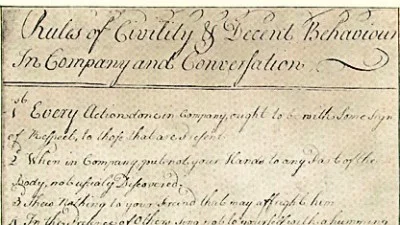 Rules of Civility & Decent Behaviour
In Company and Conversation
1st Every Action done in Company, ought to be with Some Sign
of Respect, to those that are Present.
2d When in Company, put not your Hands to any Part of the
Body, not usually Discovered.
3 Shew Nothing to your Friend that may affright him
4 In the Presence of Others Sing not to yourself with a humming